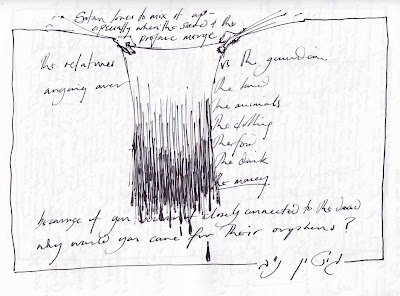 Satan loves to mix it up-
especially when the sacred & the
profane merge
the relatives vs the guardian
arguing over the land
the animals
the clothing
the food
the drink
the money
because if you closely connected to the dead
why would you care for their orphans?
גיטין נב